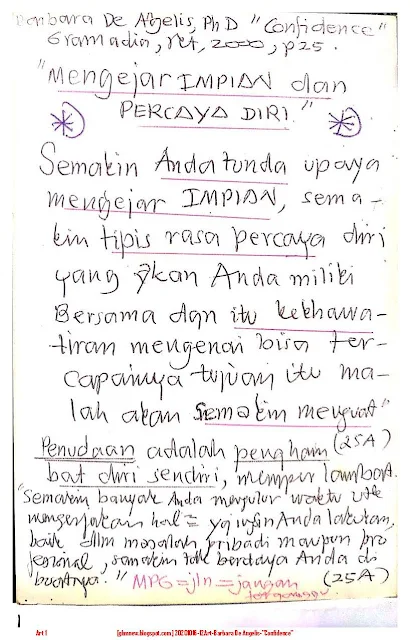 Barbara De Angelis, Ph D "Confidence"
Gramadia, 2000, p25.
"Mengejar IMPIAN dan
PERCAYA DIRI."
Semakin Anda tunda upaya
mengejar IMPIAN, sema-
kin tipis rasa percaya diri
yang akan Anda miliki
Bersama dgn itu kekhawa-
tiran mengenai bisa ter-
capainya tujuan itu ma-
lah akan semakin menguat"
(25A)
Penudaan adalah pengham
bat diri sendiri, memperlambat.
"Semakin banyak Anda mengulur waktu utk
mengerjakan hal = yg ingin Anda lakukan,
baik dlm masalah pribadi maupun pro
fesional, semakin tdk berdaya Anda di
buatnya." MPG = jln = jangan
(25A)
1
Art 1 [gbmnew.blogspot.com] 20201018-12Art-Barbara De Angelis-"Confidence"